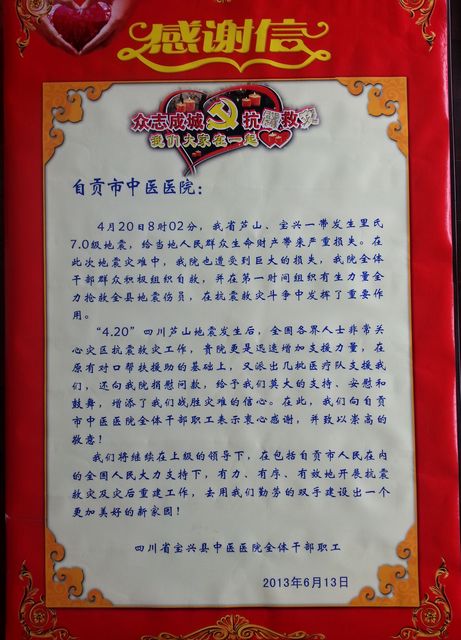 感谢信
众志成城 抗震救灾
我们大家在一起
自贡市中医医院：
4月20日8时02分，我省芦山、宝兴一带发生里氏
7.0级地震，给当地人民群众生命财产带来严重损失。在
此次地震灾难中，我院也遭受到巨大的损失，我院全体
干部群众积极组织自救，并在第一时间组织有生力量全
力抢救全县地震伤员，在抗震救灾斗争中发挥了重要作
用。
“4.20”四川芦山地震发生后，全国各界人士非常关
心灾区抗震救灾工作，贵院更是迅速增加支援力量，在
原有对口帮扶援助的基础上，又派出几批医疗队支援我
们，还向我院捐慰问款，给予我们莫大的支持、安慰和
鼓舞，增添了我们战胜灾难的信心。在此，我们向自贡
市中医医院全体干部职工表示衷心感谢，并致以崇高的
敬意！
我们将继续在上级的领导下，在包括自贡市人民在内
的全国人民大力支持下，有力、有序、有效地开展抗震
救灾及灾后重建工作，去用我们勤劳的双手建设出一个
更加美好的新家园！
四川省宝兴县中医医院全体干部职工
2013年6月13日